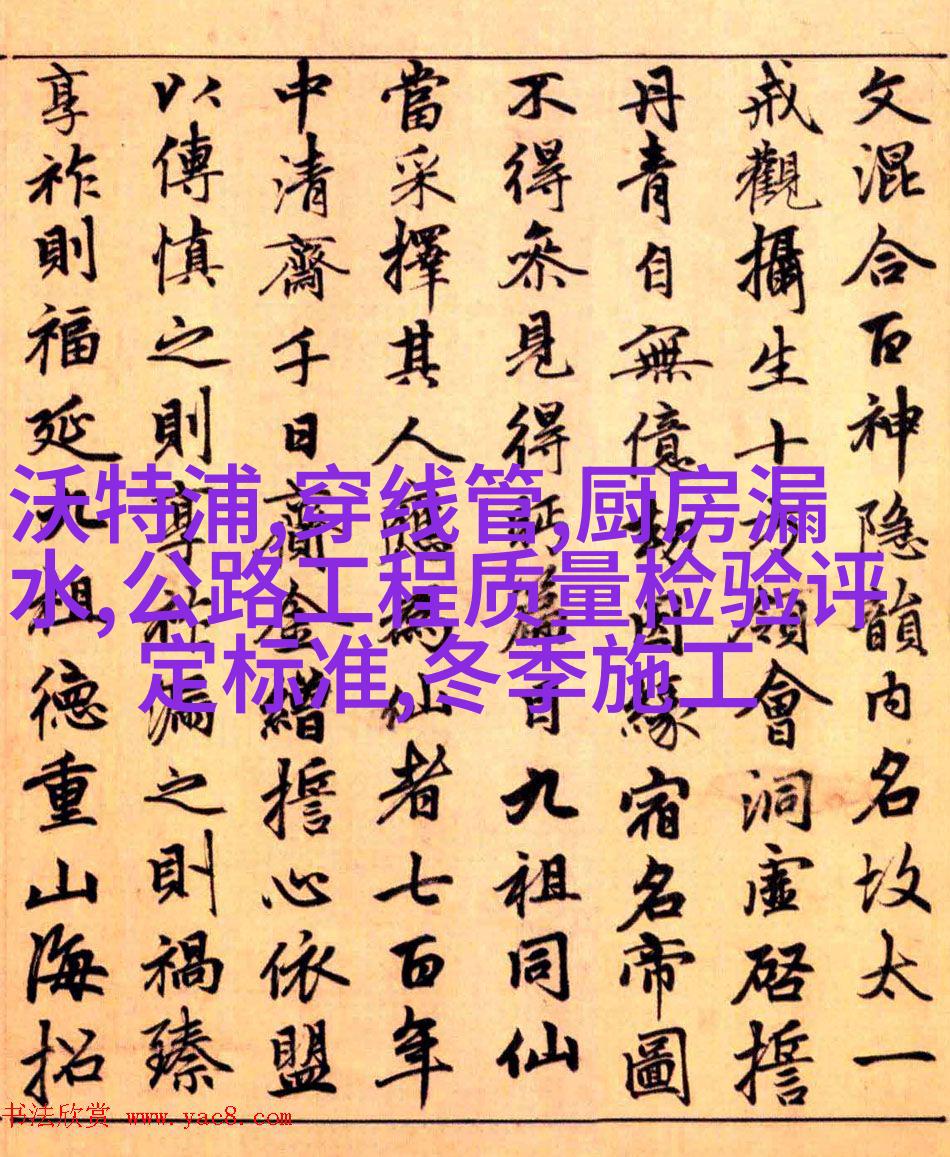 文混合百神隐韻内名故太一
戒觀攝生十方願會洞虚啓誓
丹青自無億劫因緣宿名帝圖
不得叅見得眄篇目九祖同仙
當采擇其人應為仙者七百年
中清齋千日齎金繒誓心依盟
以傳慎之則享祉漏之則禍臻
享祚則福延九祖德重山海招
沃特浦,穿线管,厨房漏
水,公路工程质量检验评
定标准,冬季施工
书法欣赏 www.yac8.com